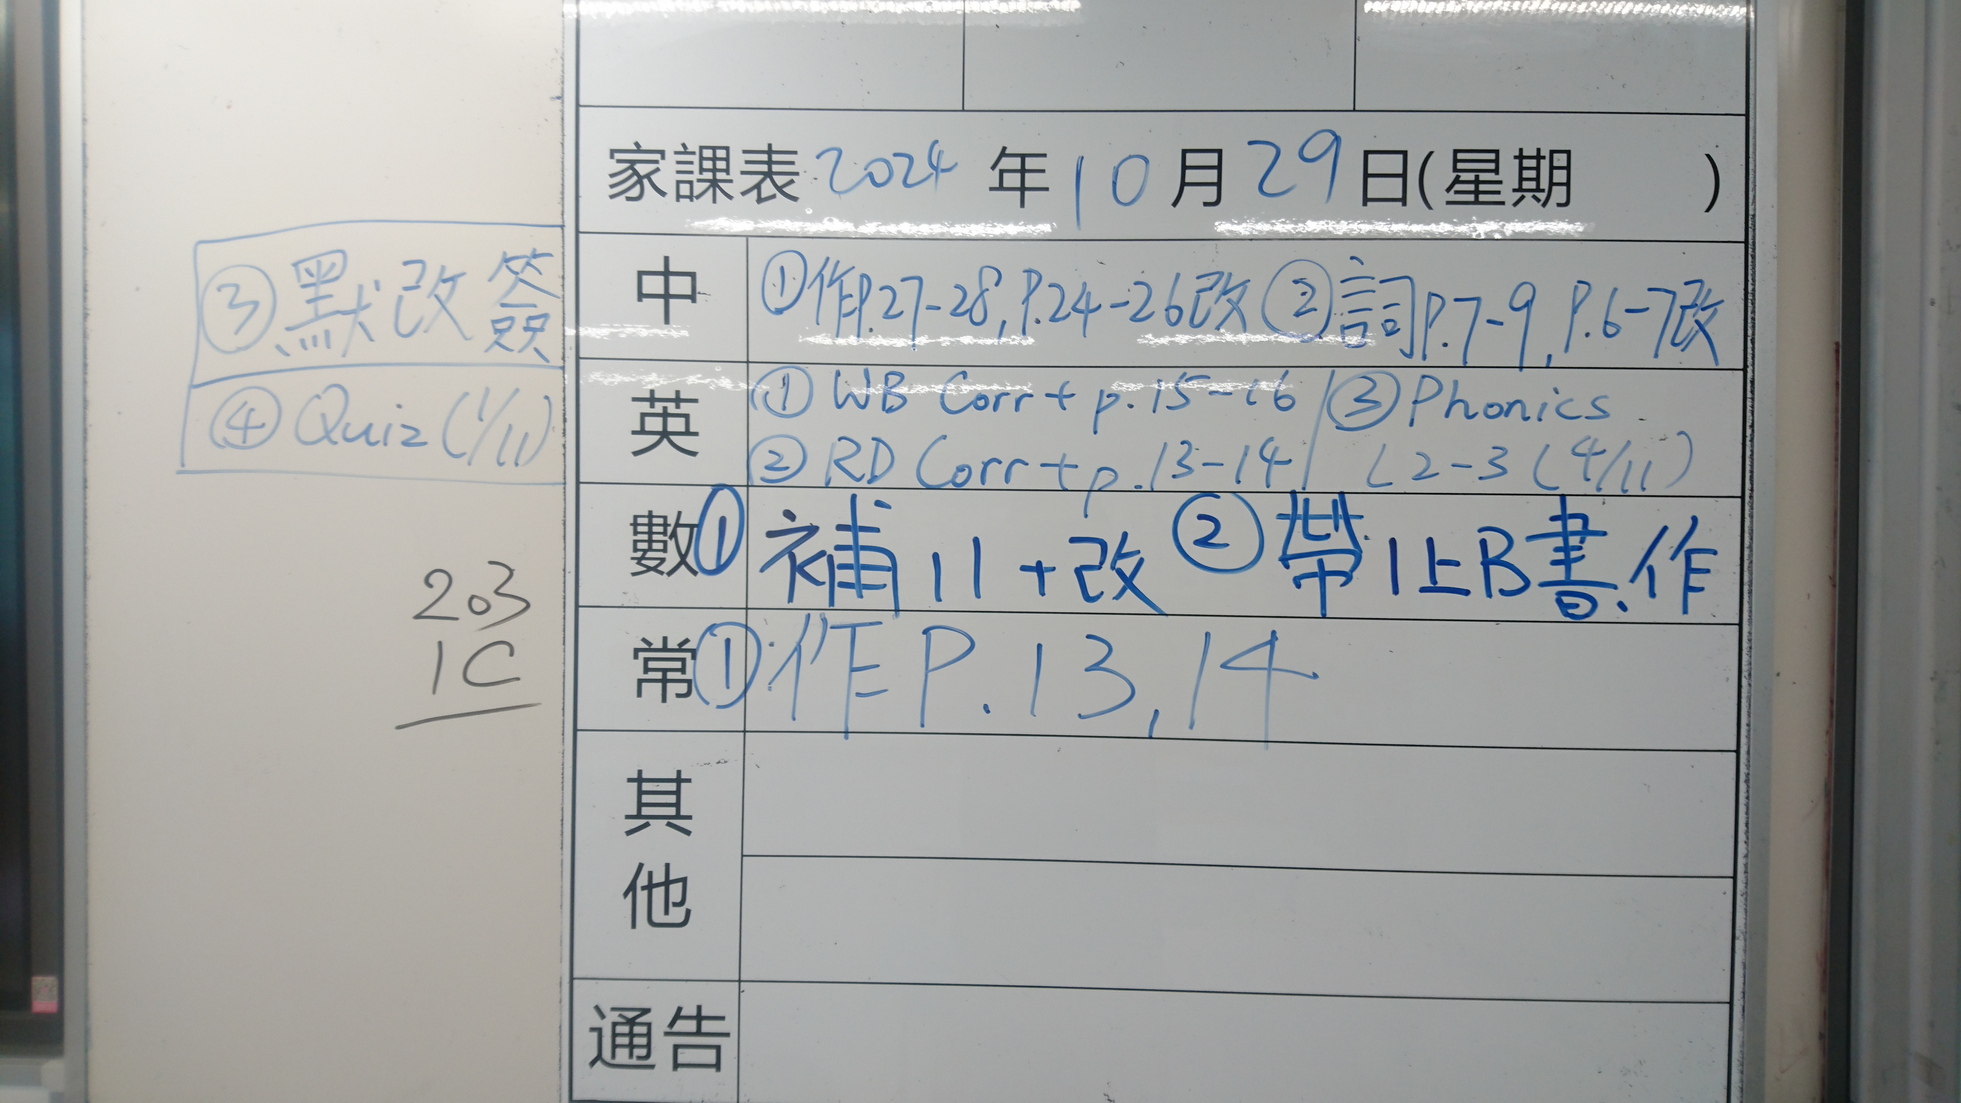 家課表 2024 年 10 月 29 日(星期 )
③默改簽
中 ①作P.27-28, P.24-26改 ②詞P.7-9, P.6-7改
④Quiz (1/11)
英 ① WB Corr + p.15-16 ③ Phonics
② RD Corr + p.13-14 L2-3 (4/11)
數 ① 補11+改 ② 帶1上B書.作
203
1C
常 ① 作P.13,14
其他
通告